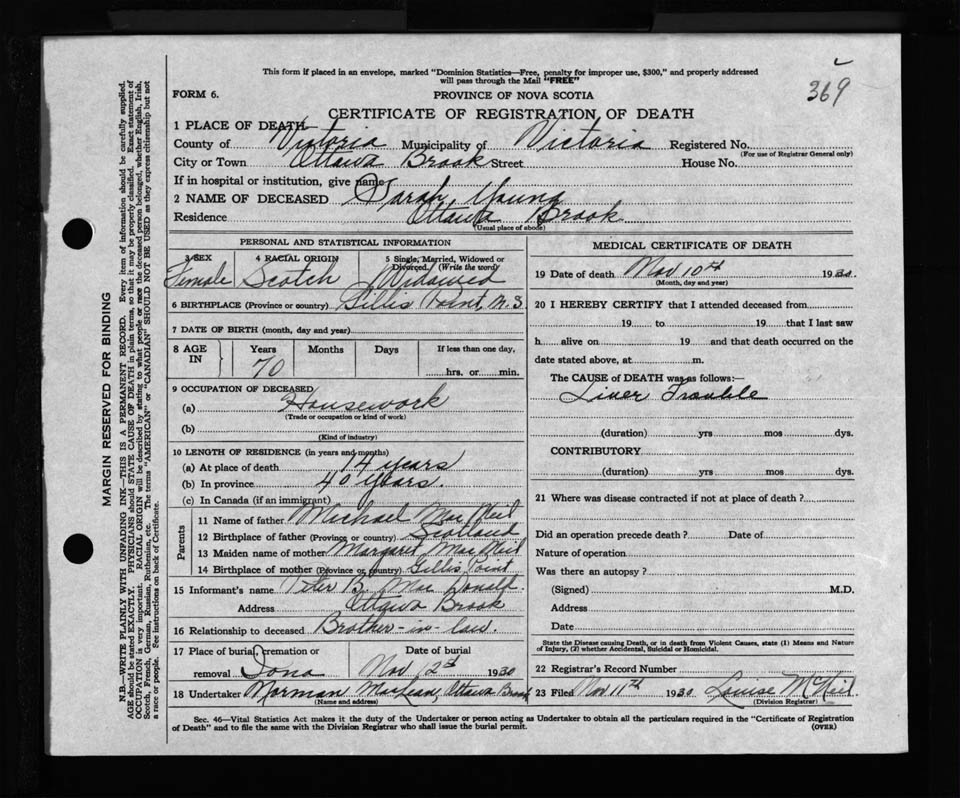 369
This form if placed in an envelope, marked "Dominion Statistics—Free, penalty for improper use, $300," and properly addressed
will pass through the Mail "FREE"
FORM 6. PROVINCE OF NOVA SCOTIA
CERTIFICATE OF REGISTRATION OF DEATH
1 PLACE OF DEATH—
County of Victoria Municipality of Victoria Registered No.
(For use of Registrar General only)
City or Town Ottawa Brook Street House No.
If in hospital or institution, give name
2 NAME OF DECEASED Sarah Young
Residence Ottawa Brook
(Usual place of abode)
PERSONAL AND STATISTICAL INFORMATION
3 SEX 4 RACIAL ORIGIN 5 Single, Married, Widowed or
Divorced. (Write the word)
Female Scotch Widowed
6 BIRTHPLACE (Province or country) Gillis Point, N.S
7 DATE OF BIRTH (month, day and year)
8 AGE IN Years Months Days If less than one day,
70 hrs. or min.
9 OCCUPATION OF DECEASED
(a) Housework
(Trade or occupation or kind of work)
(b)
(Kind of industry)
10 LENGTH OF RESIDENCE (in years and months)
(a) At place of death 14 years
(b) In province 40 years.
(c) In Canada (if an immigrant)
Parents
11 Name of father Michael Mac Neil
12 Birthplace of father (Province or country) Scotland
13 Maiden name of mother Margaret Mac Neil
14 Birthplace of mother (Province or country) Gillis Point
15 Informant's name Peter B. Mac Donald
Address Ottawa Brook
16 Relationship to deceased Brother-in-law.
17 Place of burial, cremation or Date of burial
removal Iona Nov 12th 1930
18 Undertaker Norman MacLean, Ottawa Brook
(Name and address)
MEDICAL CERTIFICATE OF DEATH
19 Date of death Nov 10th 1930.
(Month, day and year)
20 I HEREBY CERTIFY that I attended deceased from
19 to 19 that I last saw
h alive on 19 and that death occurred on the
date stated above, at m.
The CAUSE of DEATH was as follows:—
Liver Trouble
(duration) yrs mos dys.
CONTRIBUTORY
(duration) yrs mos dys.
21 Where was disease contracted if not at place of death?
Did an operation precede death? Date of
Nature of operation
Was there an autopsy?
(Signed) M.D.
Address
Date
State the Disease causing Death, or in death from Violent Causes, state (1) Means and Nature
of Injury, (2) whether Accidental, Suicidal or Homicidal.
22 Registrar's Record Number
23 Filed Nov 11th 1930 Louise McNeil
(Division Registrar)
Sec. 46—Vital Statistics Act makes it the duty of the Undertaker or person acting as Undertaker to obtain all the particulars required in the "Certificate of Registration
of Death" and to file the same with the Division Registrar who shall issue the burial permit. (OVER)
MARGIN RESERVED FOR BINDING
N.B.—WRITE PLAINLY WITH UNFADING INK—THIS IS A PERMANENT RECORD. Every item of information should be carefully supplied.
AGE should be stated EXACTLY. PHYSICIANS should STATE CAUSE OF DEATH in plain terms, so that it may be properly classified. Exact statement of
OCCUPATION is very important. RACIAL ORIGIN will be described by stating to what people or race the deceased person belonged, whether English, Irish,
Scotch, French, German, Russian, Ruthenian, etc. The terms "AMERICAN" or "CANADIAN" SHOULD NOT BE USED as they express citizenship but not
a race or people. See instructions on back of Certificate.